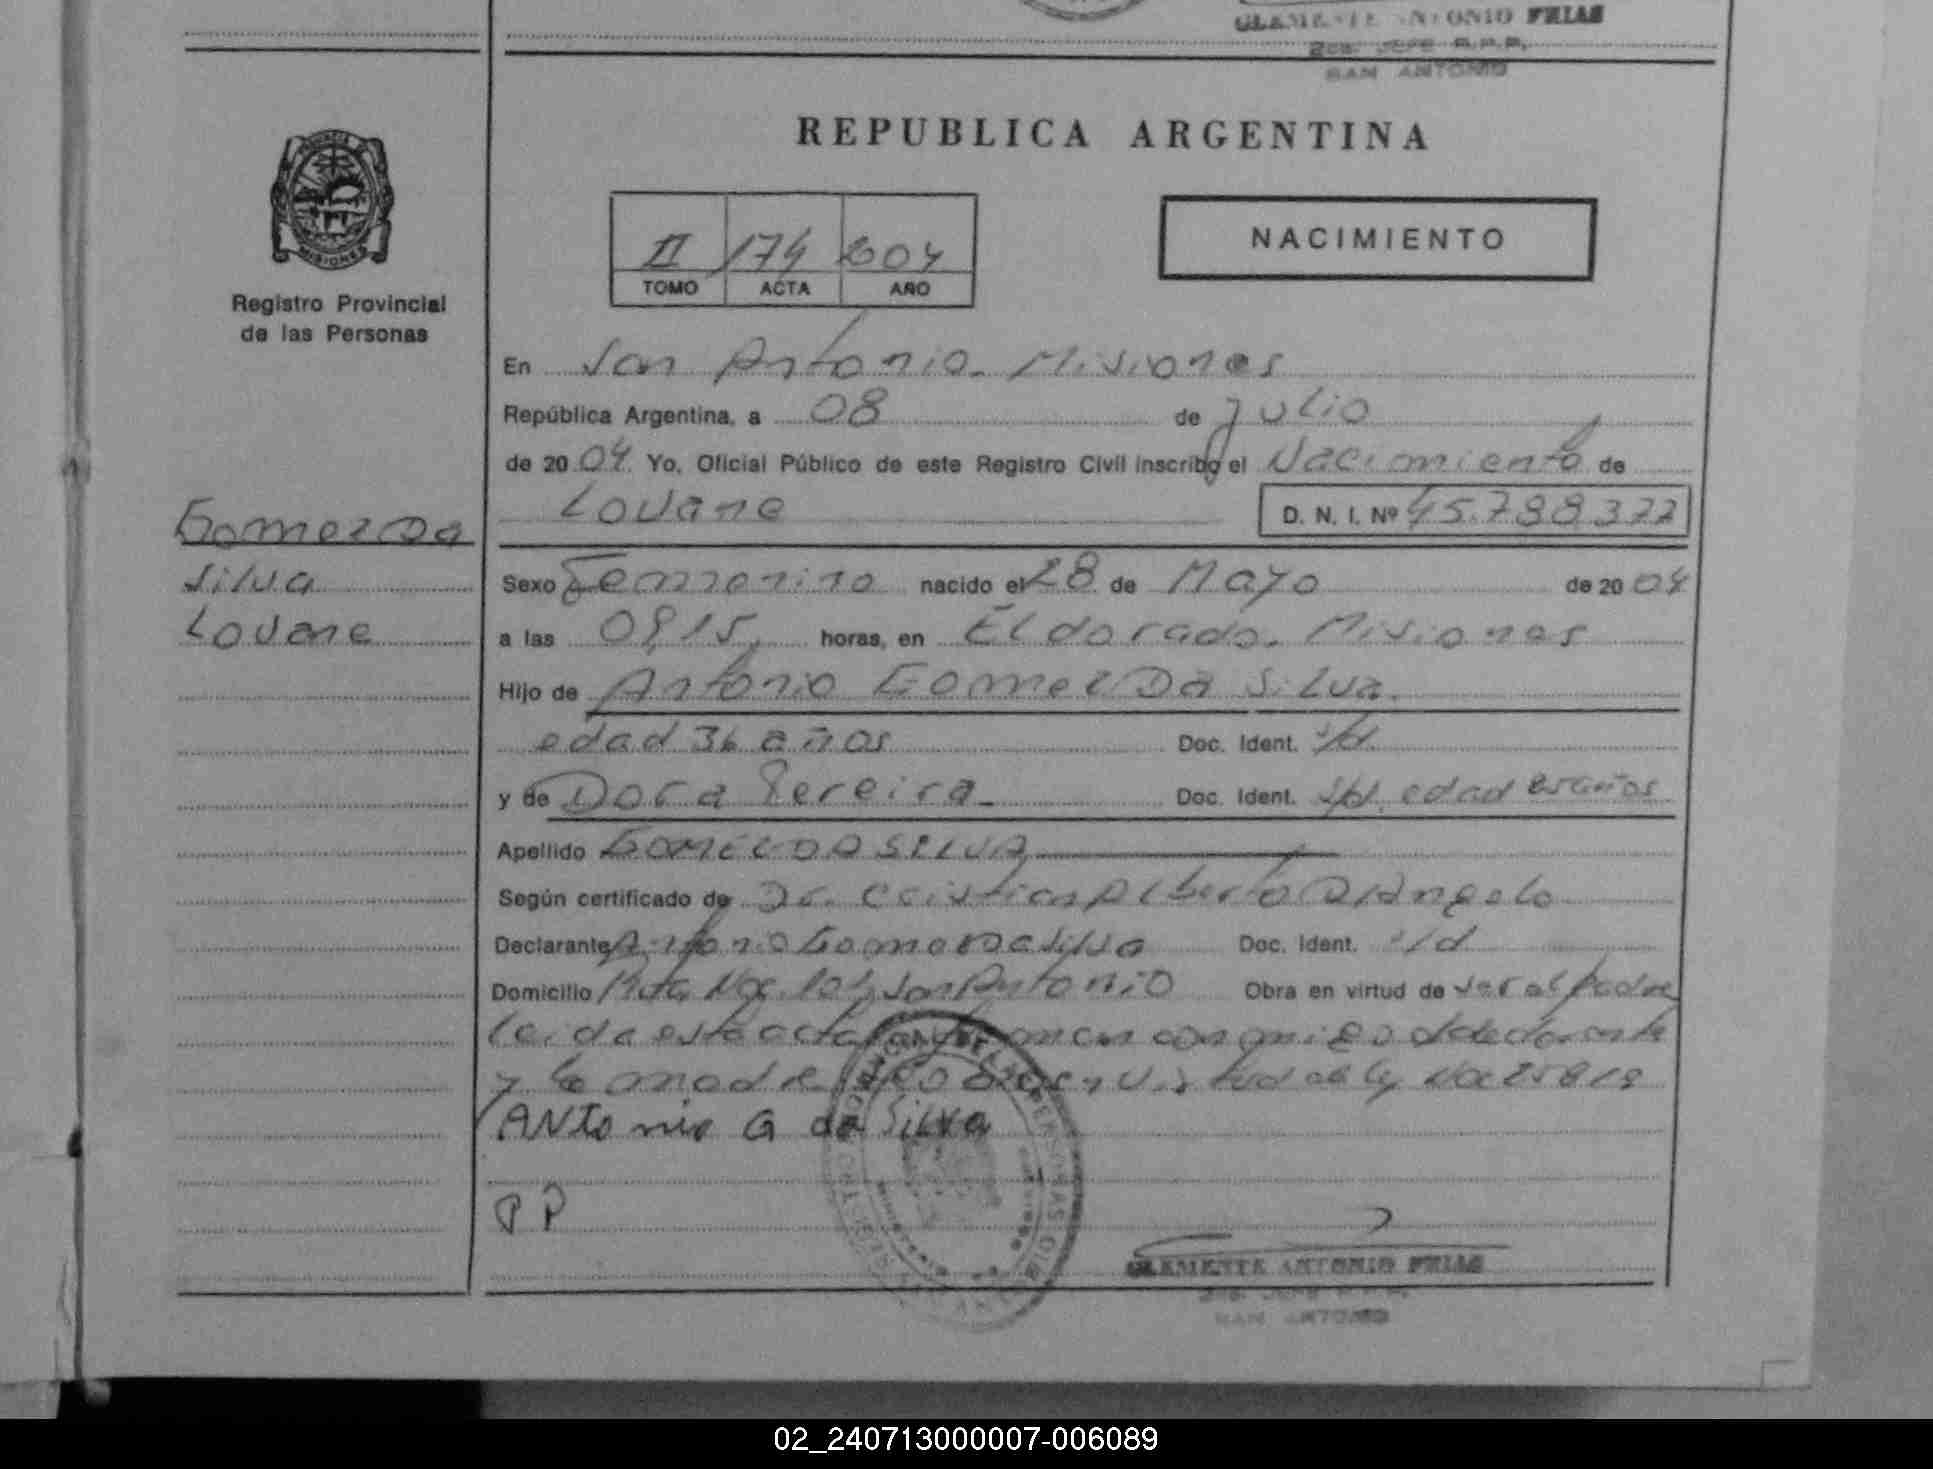 CLEMENTE ANTONIO FRIAS
2do. JEFE R.P.P.
SAN ANTONIO
REPUBLICA ARGENTINA
MISIONES
Registro Provincial
de las Personas
II 174 2004
TOMO ACTA AÑO
NACIMIENTO
En San Antonio. Misiones
República Argentina, a 08 de Julio
de 2004. Yo, Oficial Público de este Registro Civil inscribo el Nacimiento de
Lovane D. N. I. Nº 45.788.372
Gomez Da
Silva
Lovane
Sexo Femenino nacido el 28 de Mayo de 2004
a las 09,15, horas, en Eldorado. Misiones
Hijo de Antonio Gomez Da Silva.
edad 36 años Doc. Ident. s/d.
y de Dora Pereira Doc. Ident. s/d. edad años
Apellido GOMEZ DA SILVA
Según certificado de Dr. Cristian Alberto D'Angelo
Declarante Antonio Gomez Da Silva Doc. Ident. s/d
Domicilio San Antonio Obra en virtud de ser el padre
Leida esta acta firman conmigo el declarante
y la madre
ANTonio G da Silva
PP
CLEMENTE ANTONIO FRIAS
2do. JEFE R.P.P.
SAN ANTONIO
02_240713000007-006089